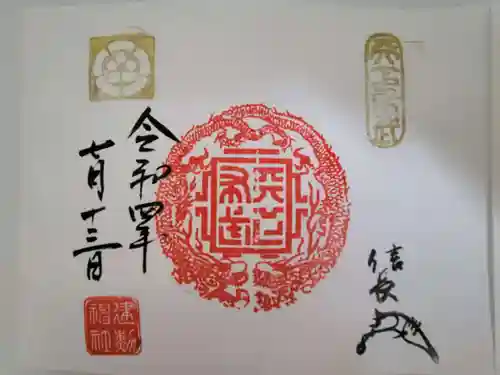 天下布武
信長
天下
布武
令和四年
七月十三日
建勲
神社